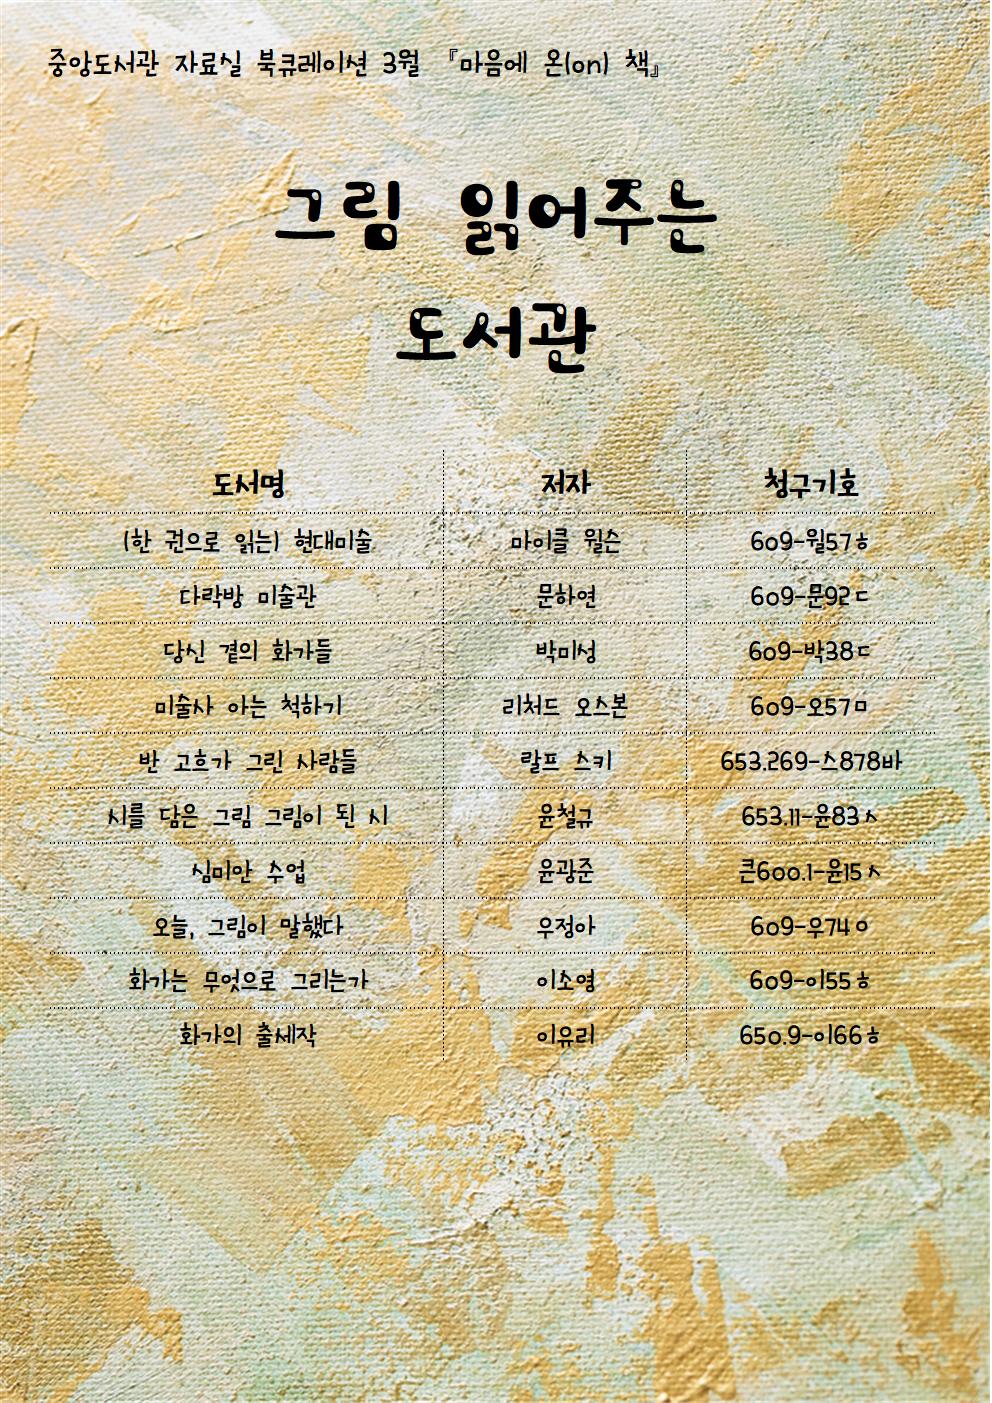 중앙도서관 자료실 북큐레이션 3월 『마음에 온(on) 책』
그림 읽어주는
도서관
도서명 저자 청구기호
(한 권으로 읽는) 현대미술 마이클 윌슨 609-윌57ㅎ
다락방 미술관 문하연 609-문92ㄷ
당신 곁의 화가들 박미성 609-박38ㄷ
미술사 아는 척하기 리처드 오스본 609-오57ㅁ
반 고흐가 그린 사람들 랄프 스키 653.269-스878바
시를 담은 그림 그림이 된 시 윤철규 653.11-윤83ㅅ
심미안 수업 윤광준 큰600.1-윤15ㅅ
오늘, 그림이 말했다 우정아 609-우74ㅇ
화가는 무엇으로 그리는가 이소영 609-이55ㅎ
화가의 출세작 이유리 650.9-이66ㅎ